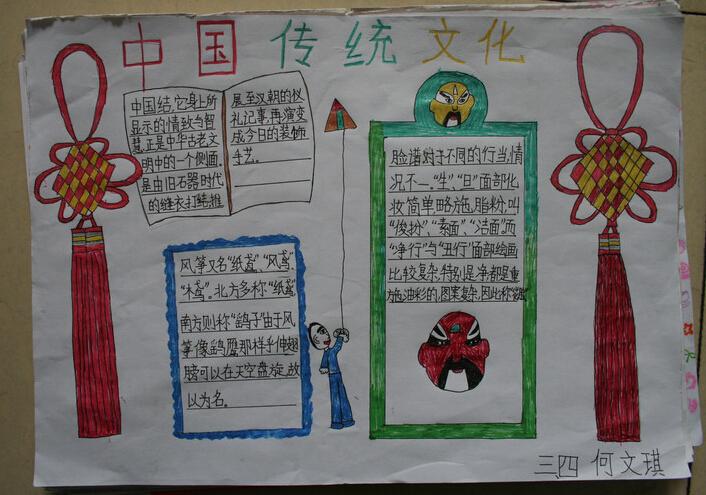 中国传统文化
中国结,它身上所
显示的情致与智
慧,正是中华古老文
明中的一个侧面.
是由旧石器时代
的缝衣打结,推
展至汉朝的仪
礼记事,再演变
成今日的装饰
手艺.
风筝又名“纸鸢”、“风鸢”、
“木鸢”。北方多称“纸鸢”
南方则称“鹞子”由于风
筝像鹞鹰那样平伸翅
膀可以在天空盘旋,故
以为名。
脸谱对于不同的行当,情
况不一.“生”、“旦”面部化
妆简单,略施,脂粉,叫
“俊扮”、“素面”、“洁面”,而
“净行”与“丑行”面部绘画
比较复杂,特别是净,都是重
施,油彩的,图案复杂,因此称
三.四 何文琪